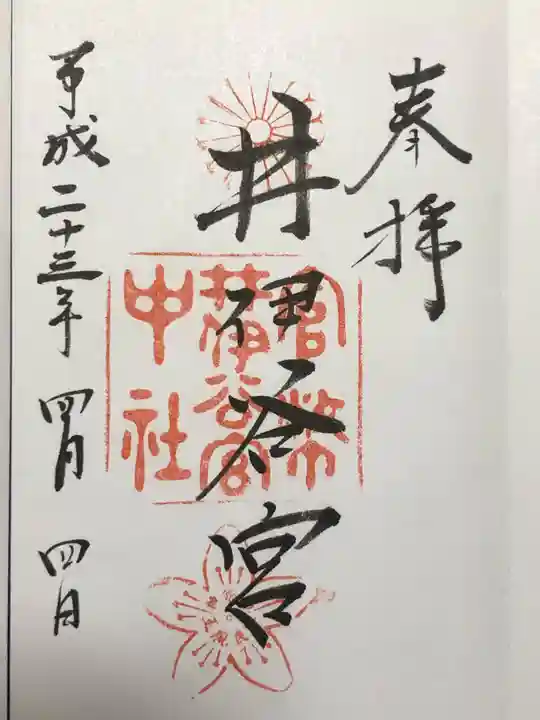 奉拝
井伊谷宮
官幣
井伊谷宮
中社
平成二十三年 四月 四日